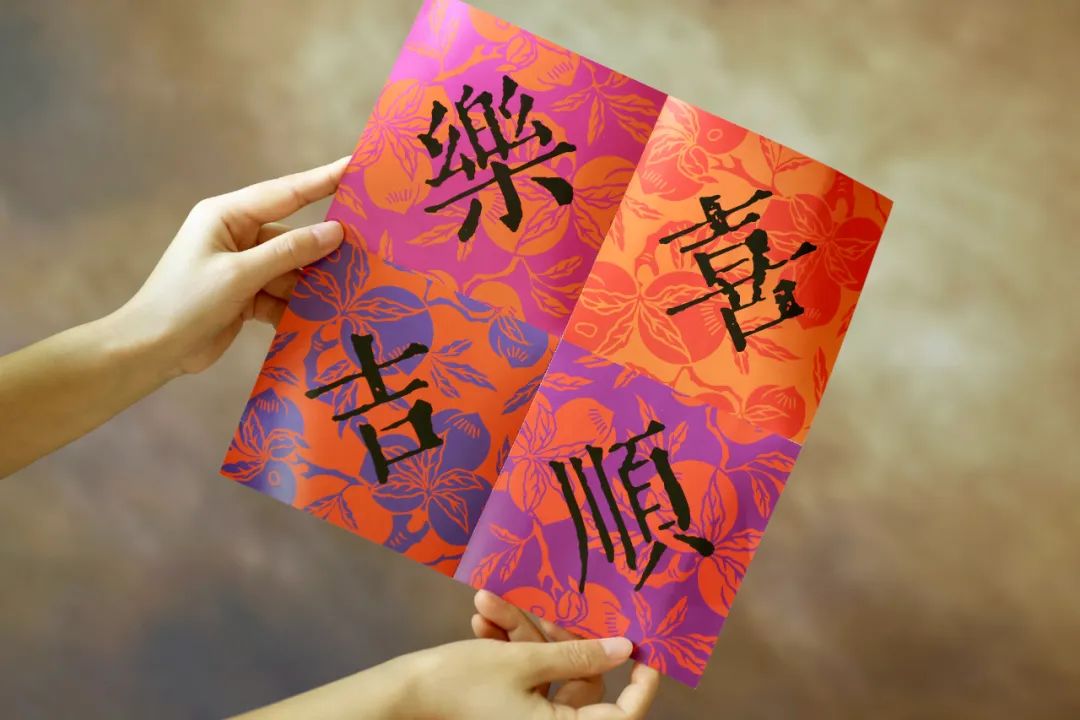 樂 喜
吉 順